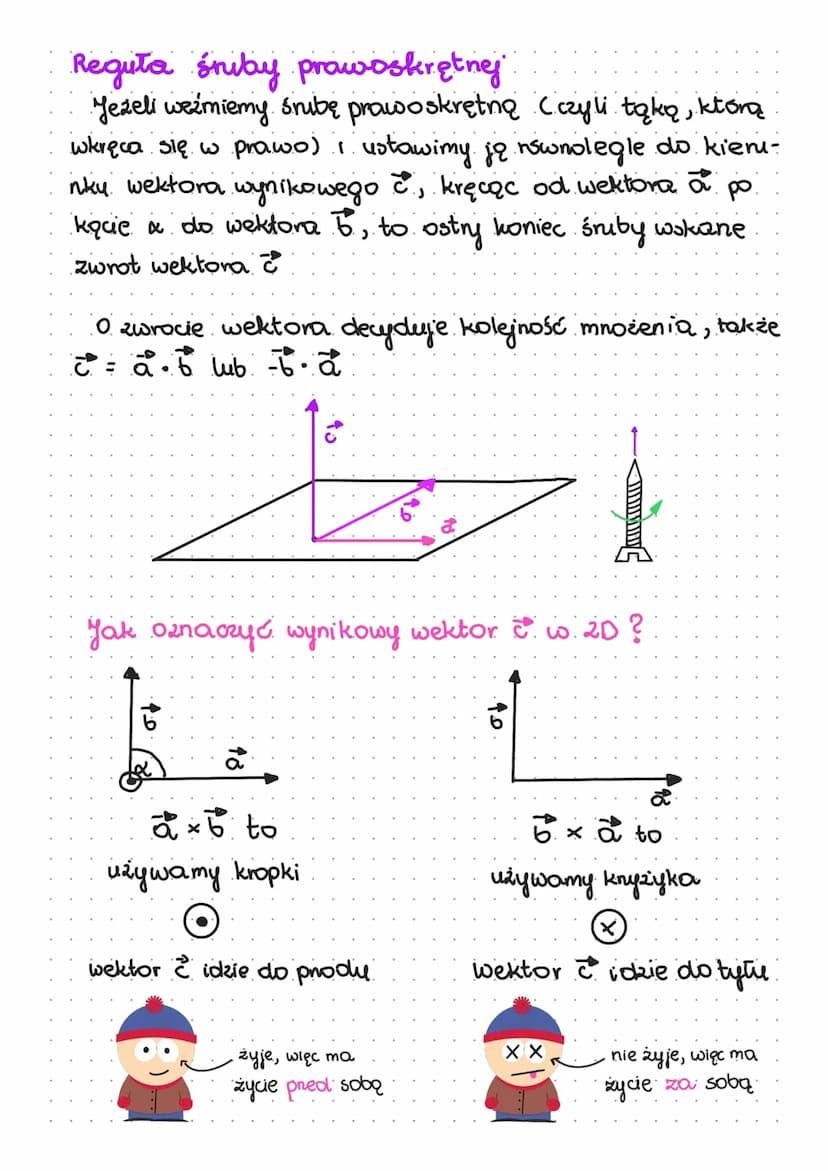 Reguła śruby prawoskrętnej
Jeżeli weźmiemy śrubę prawoskrętną (czyli taką, która
wkręca się w prawo) i ustawimy ją równolegle do kieru-
nku wektora wynikowego c⃗, kręcąc od wektora a⃗ po
kącie α do wektora b⃗, to ostry koniec śruby wskaże
zwrot wektora c⃗
O zwrocie wektora decyduje kolejność mnożenia, także
c⃗ = a⃗ · b⃗ lub -b⃗ · a⃗
c⃗
b⃗
a⃗
Jak oznaczyć wynikowy wektor c⃗ w 2D?
b⃗
α
a⃗
a⃗ × b⃗ to
używamy kropki
wektor c⃗ idzie do przodu
żyje, więc ma
życie przed sobą
b⃗
a⃗
b⃗ × a⃗ to
używamy krzyżyka
wektor c⃗ idzie do tyłu
nie żyje, więc ma
życie za sobą